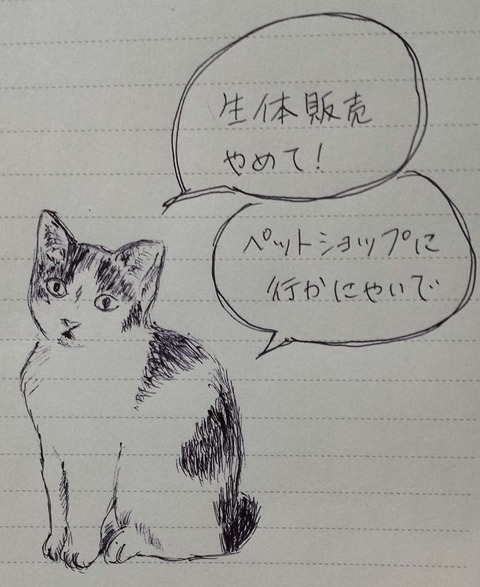 生体販売
やめて!
ペットショップに
行かにゃいで